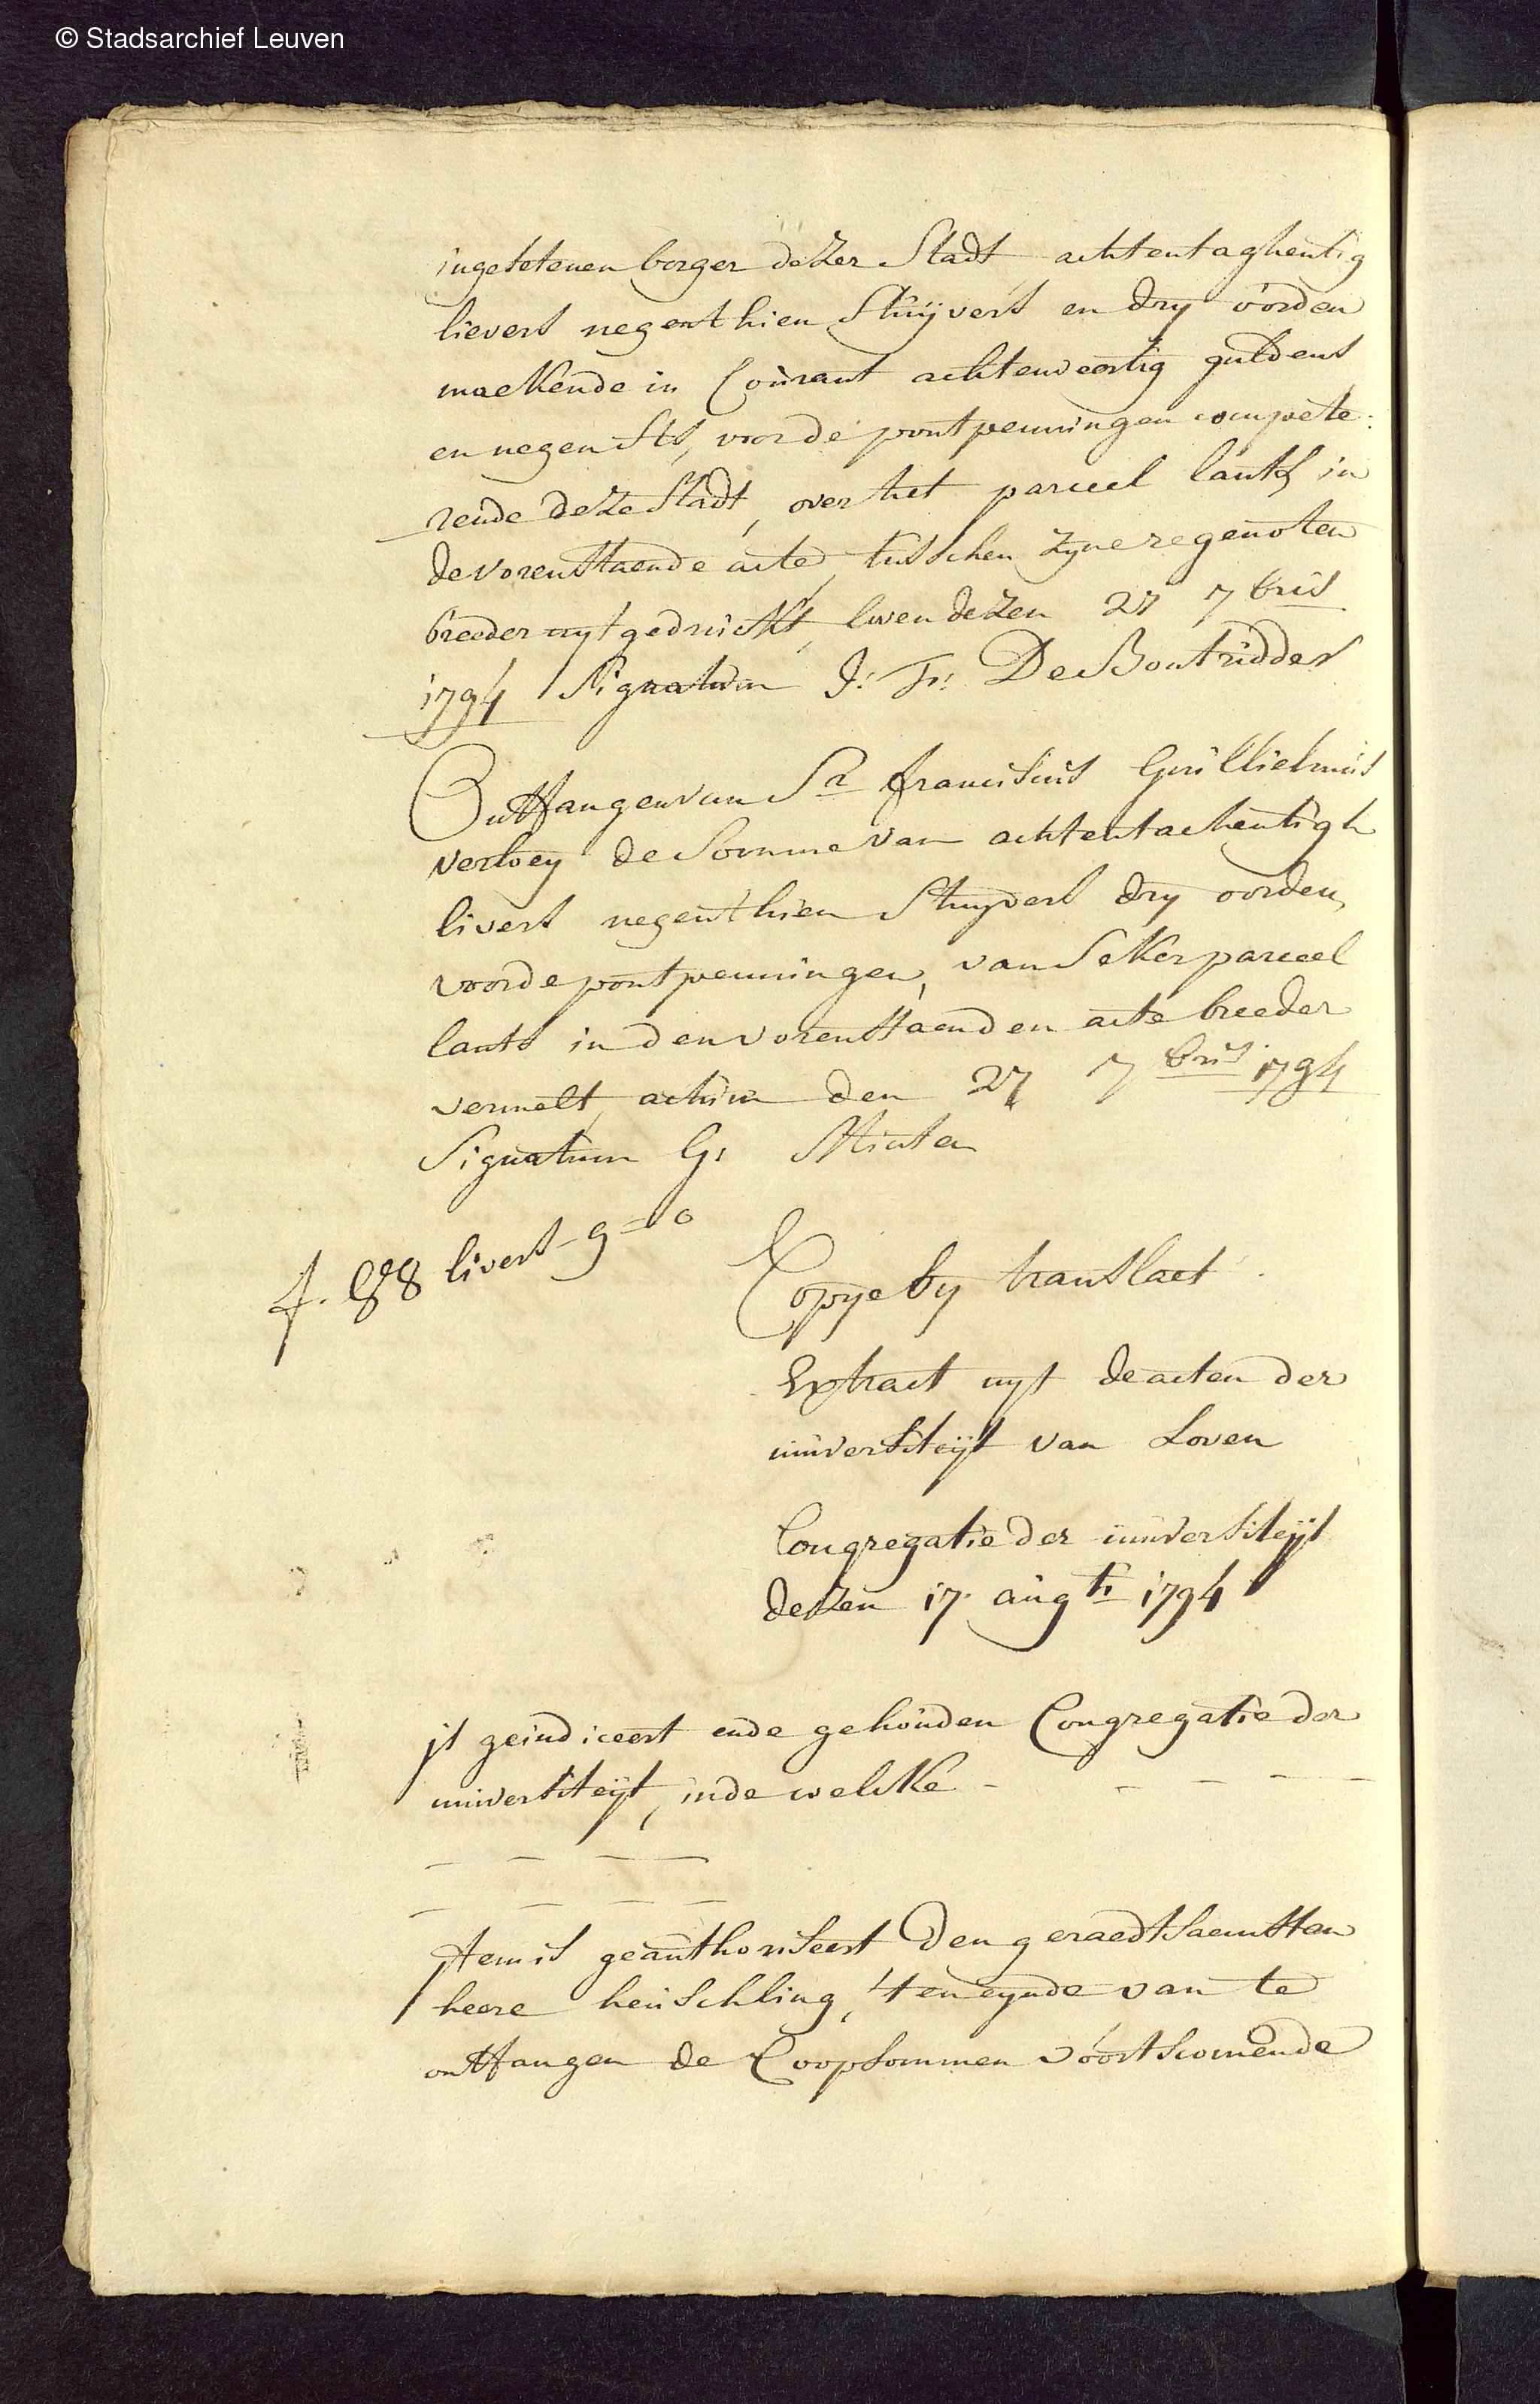 © Stadsarchief Leuven
ingesetenen borger dezer Stadt achtentaghentig
lievers negenthien Stuÿvers en dry oorden
maekende in Courant achtenveertig guldens
en negen Sts, voor de pontpenningen compete:
rende deze Stadt, over het parceel lants in
de vorenstaende acte, tusschen zyne regenoten
breeder uytgedruckt, loven dezen 27 7bris
1794 Signatum J: Fr: De Bontridder
Ontfangen van Sr franciscus Guillielmus
verloey de Somme van achtentachentigh
livers negenthien Stuyvers dry oorden,
voor de pontpenningen, van Seker parceel
lants in den vorenstaenden acte breeder
vermelt, actum den 27 7bris 1794
Signatum G: Minten
f. 88 livers - 9 = 0
Copye by translaet
Extract uyt de acten der
universiteÿt van Loven
Congregatie der universiteÿt
dezen 17 augti 1794
js geindiceert ende gehouden Congregatie der
universiteÿt, in de welcke - - - - -
- - - -
- - - -
jtem is geauthoriseert den geraedtsaemsten
heere heuschling, ten eynde van te
ontfangen de Coopsommen voortscomende